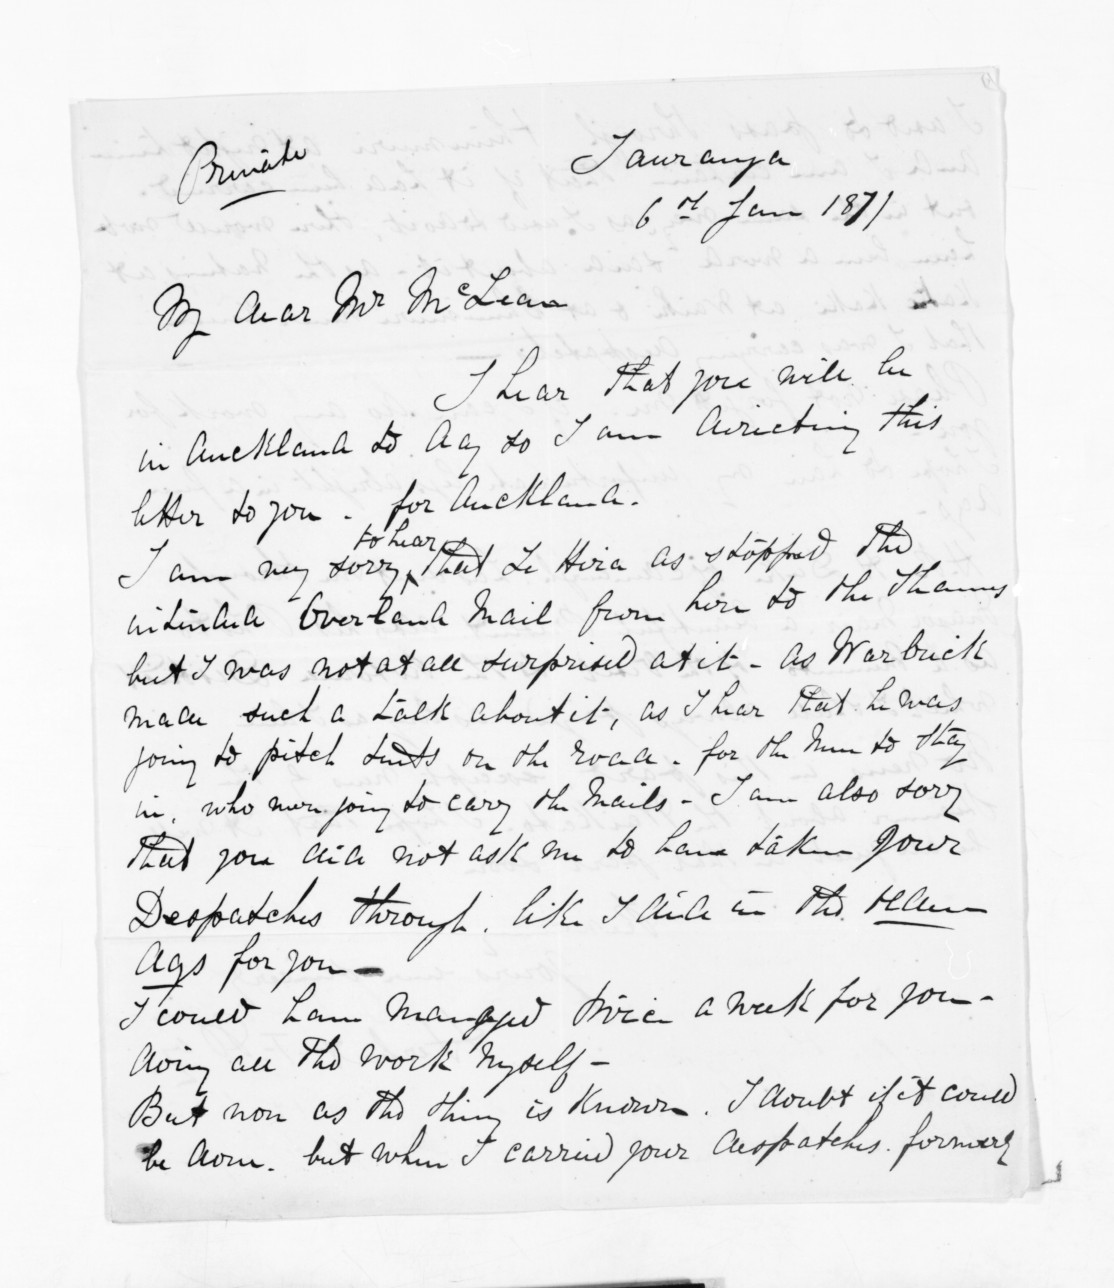 Private
Tauranga
6th Jan 1871
My dear Mr McLean
I hear that you will be
in Auckland to day so I am directing this
letter to you - for Auckland.
to hear
I am very sorry that Te Hira as stopped the
intended Overland Mail from here to the Thames
but I was not at all surprised at it - as Warbrick
made such a talk about it, as I hear that he was
going to pitch tents on the road - for the Men to stay
in, who were going to carry the Mails - I am also sorry
that you did not ask me to have taken your
Despatches through, like I did in the
days for you -
I could have managed twice a week for you -
doing all the work myself -
But now as the thing is Known. I doubt if it could
be done. but when I carried your despatches formerly